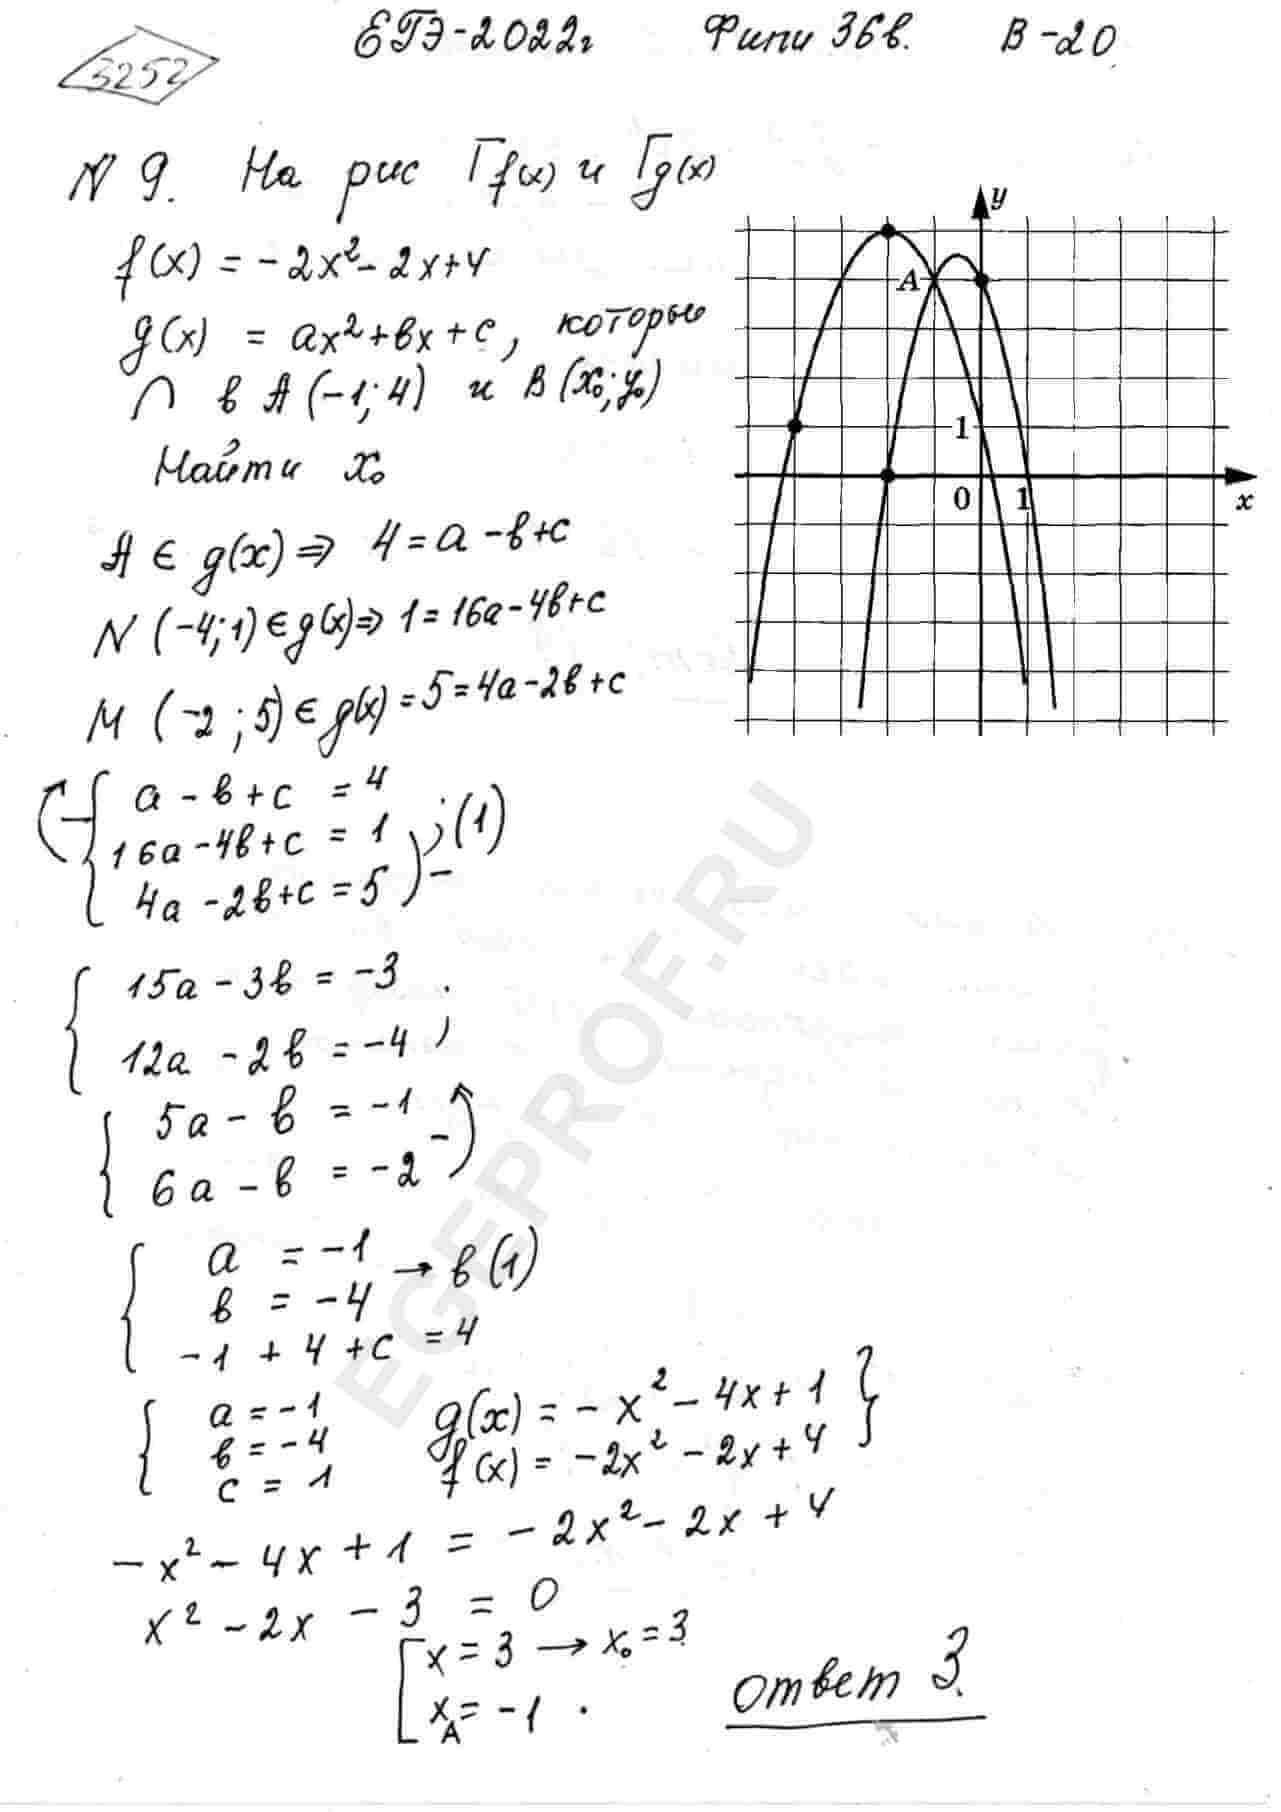 ЕГЭ-2022г Фипи 36в. В-20
3252
N 9. На рис Гf(x) и Гg(x)
f(x) = -2x²-2x+4
g(x) = ax²+вx+c, которые
∩ в A(-1;4) и B(x₀;y₀)
Найти x₀
y
A
1
0 1 x
A ∈ g(x) ⇒ 4 = a - в + c
N (-4;1) ∈ g(x) ⇒ 1 = 16a - 4в + c
M (-2;5) ∈ g(x) = 5 = 4a - 2в + c
a - в + c = 4
16a - 4в + c = 1 ; (1)
4a - 2в + c = 5 -
15a - 3в = -3 ;
12a - 2в = -4
5a - в = -1
6a - в = -2 -
a = -1 → в (1)
в = -4
-1 + 4 + c = 4
a = -1 g(x) = -x² - 4x + 1
в = -4 f(x) = -2x² - 2x + 4
c = 1
-x² - 4x + 1 = -2x² - 2x + 4
x² - 2x - 3 = 0
x = 3 → x₀ = 3
x_A = -1 .
ответ 3.
EGEPROF.RU